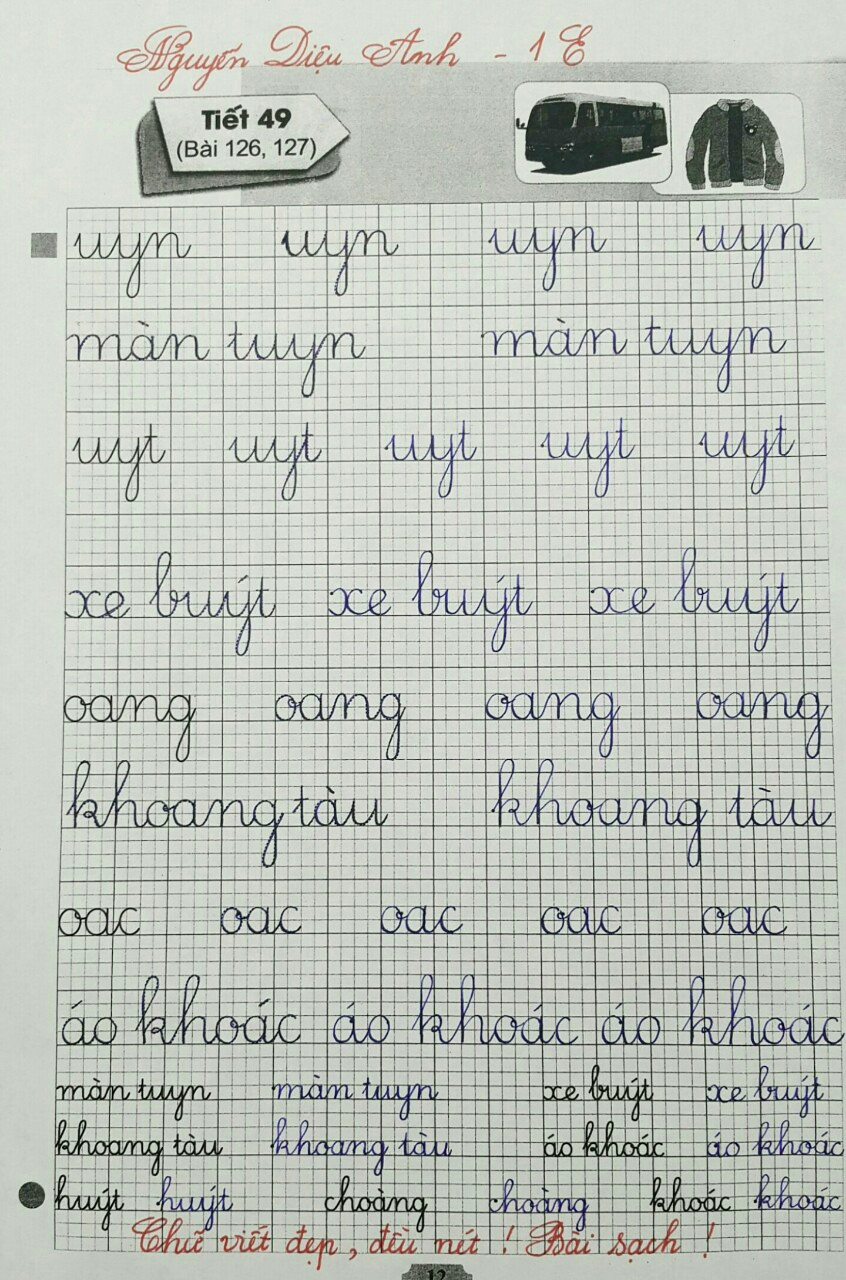 Nguyễn Diệu Anh - 1 E
Tiết 49
(Bài 126, 127)
uyn uyn uyn uyn
màn tuyn màn tuyn
uyt uyt uyt uyt uyt
xe buýt xe buýt xe buýt
oang oang oang oang
khoang tàu khoang tàu
oac oac oac oac oac
áo khoác áo khoác áo khoác
màn tuyn màn tuyn xe buýt xe buýt
khoang tàu khoang tàu áo khoác áo khoác
huýt huýt choàng choàng khoác khoác
Chữ viết đẹp, đều nét! Bài sạch!
12